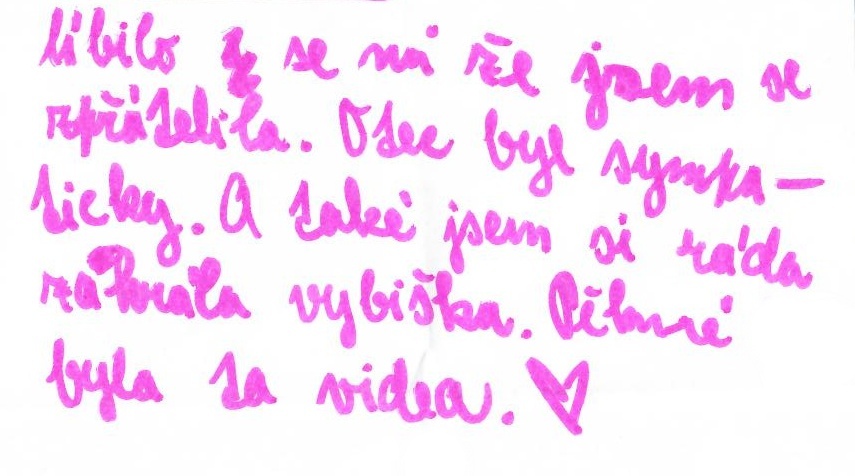 líbilo se mi že jsem se
zpřátelila. Otec byl sympa-
tický. A také jsem si ráda
zahrála vybiška. Pěkné
byla ta videa. ♡